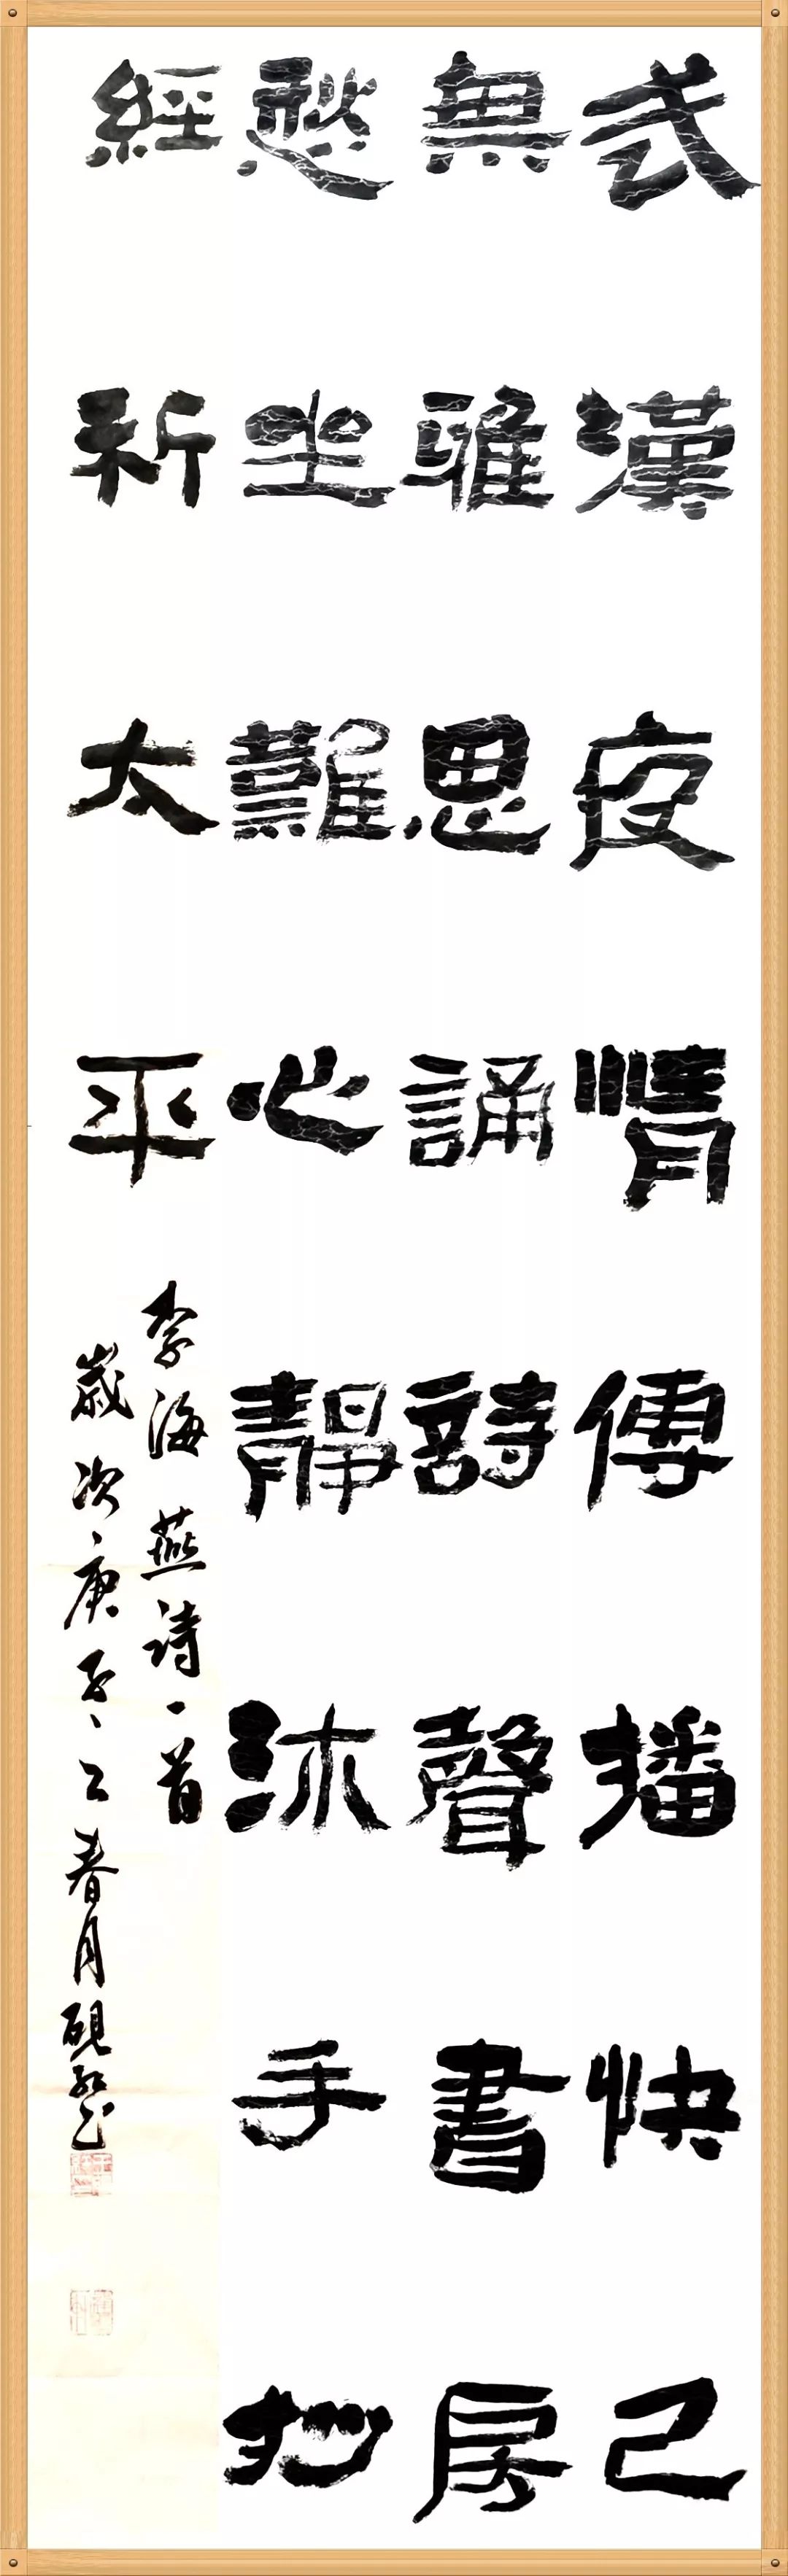 武漢疫情傳播快己
無雅思誦詩聲書房
愁坐難心靜沐手抄
經祈太平
李海燕詩一首
歲次庚子之春月硯